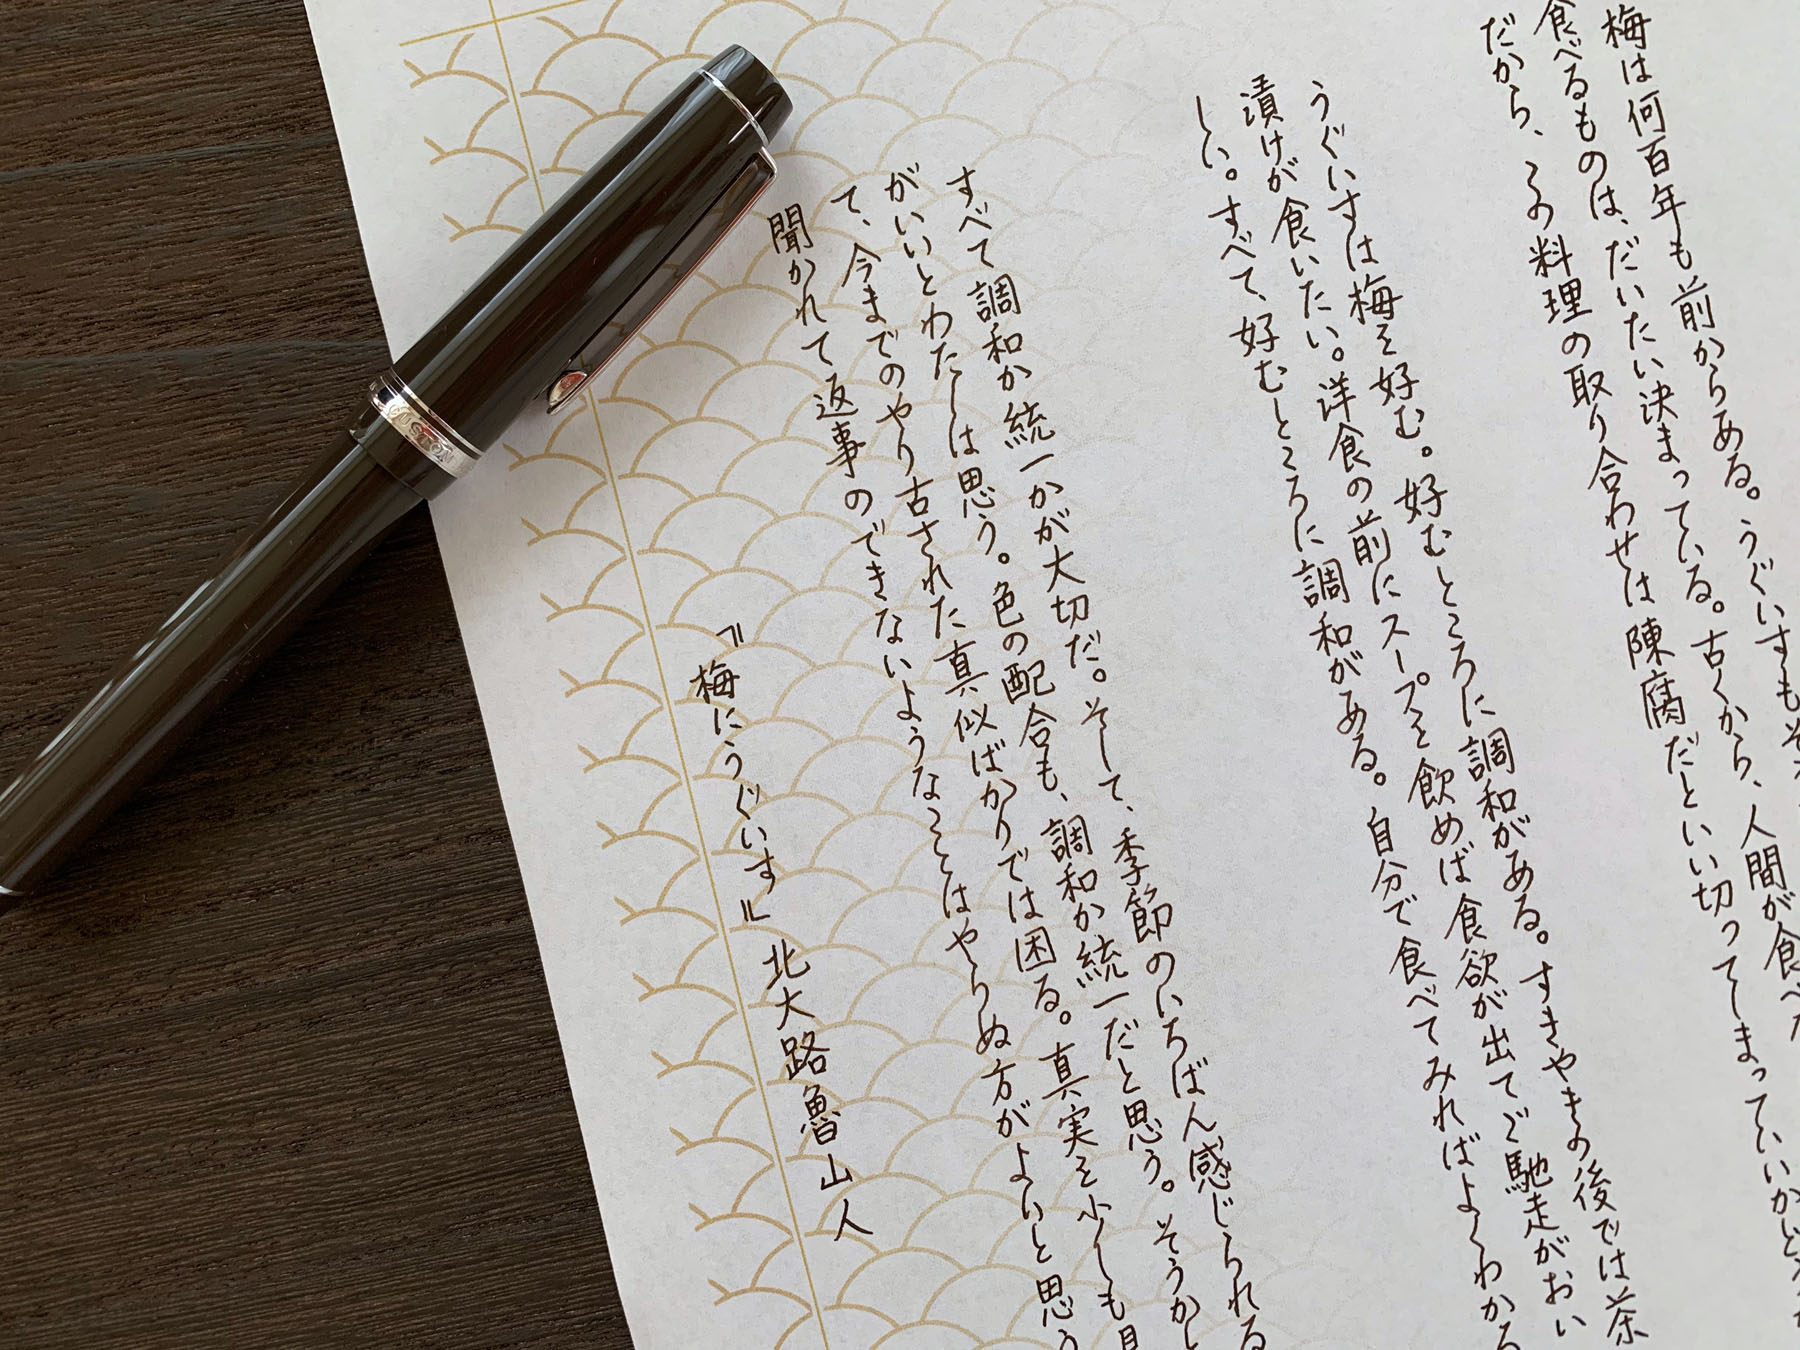 梅は何百年も前からある。うぐいすもそ
食べるものは、だいたい決まっている。古くから、人間が食べた
だから、この料理の取り合わせは陳腐だといい切ってしまっていいかど
うぐいすは梅を好む。好むところに調和がある。すきやきの後では茶
漬けが食いたい。洋食の前にスープを飲めば食欲が出てご馳走がおい
しい。すべて、好むところに調和がある。自分で食べてみればよくわかる
すべて調和か統一かが大切だ。そして、季節のいちばん感じられる
がいいとわたしは思う。色の配合も、調和か統一だと思う。そうかと
て、今までのやり古された真似ばかりでは困る。真実を少しも
聞かれて返事のできないようなことはやらぬ方がよいと思う
『梅にうぐいす』北大路魯山人
CUSTOM